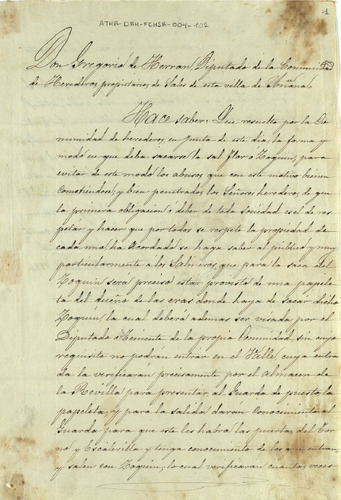 ATHA-DAH-FCHSA-004-102
1
Don Gregorio de Herran, Diputado de la Comunidad
de Herederos propietarios de Sales de esta villa de Añana.
Hace saber: Que resuelto por la Co
munidad de herederos en junta de este dia, la forma y
modo en que deba sacarse la sal flor o Zoquin, para
evitar de este modo los abusos que con este motivo bienen
Cometiendose; y bien penetrados los Señores herederos de que
la primera obligacion ó deber de toda Sociedad es el de res
petar y hacer que por todos se respete la propiedad de
cada uno ha Acordado se haga saber al publico y muy
particularmente a los Salineros, que para la saca del
Zoquin será preciso estar provisto de una papele
ta del dueño de las eras donde haya de sacar dicho
Zoquin, la cual deberá ademas ser visada por el
Diputado de la propia Comunidad sin cuyo
requisito no podran entrar en el Valle, cuya entra
da la verificaran precisamente por el Almacen de
la Revilla para presentar al Guarda de puesto la
papeleta, y para la salida daran conocimiento al
Guarda para que este les habra las puertas del
no y Escalerilla y tenga conocimiento de los que entran,
y salen con Zoquin; lo cual verificaran cuantas veces